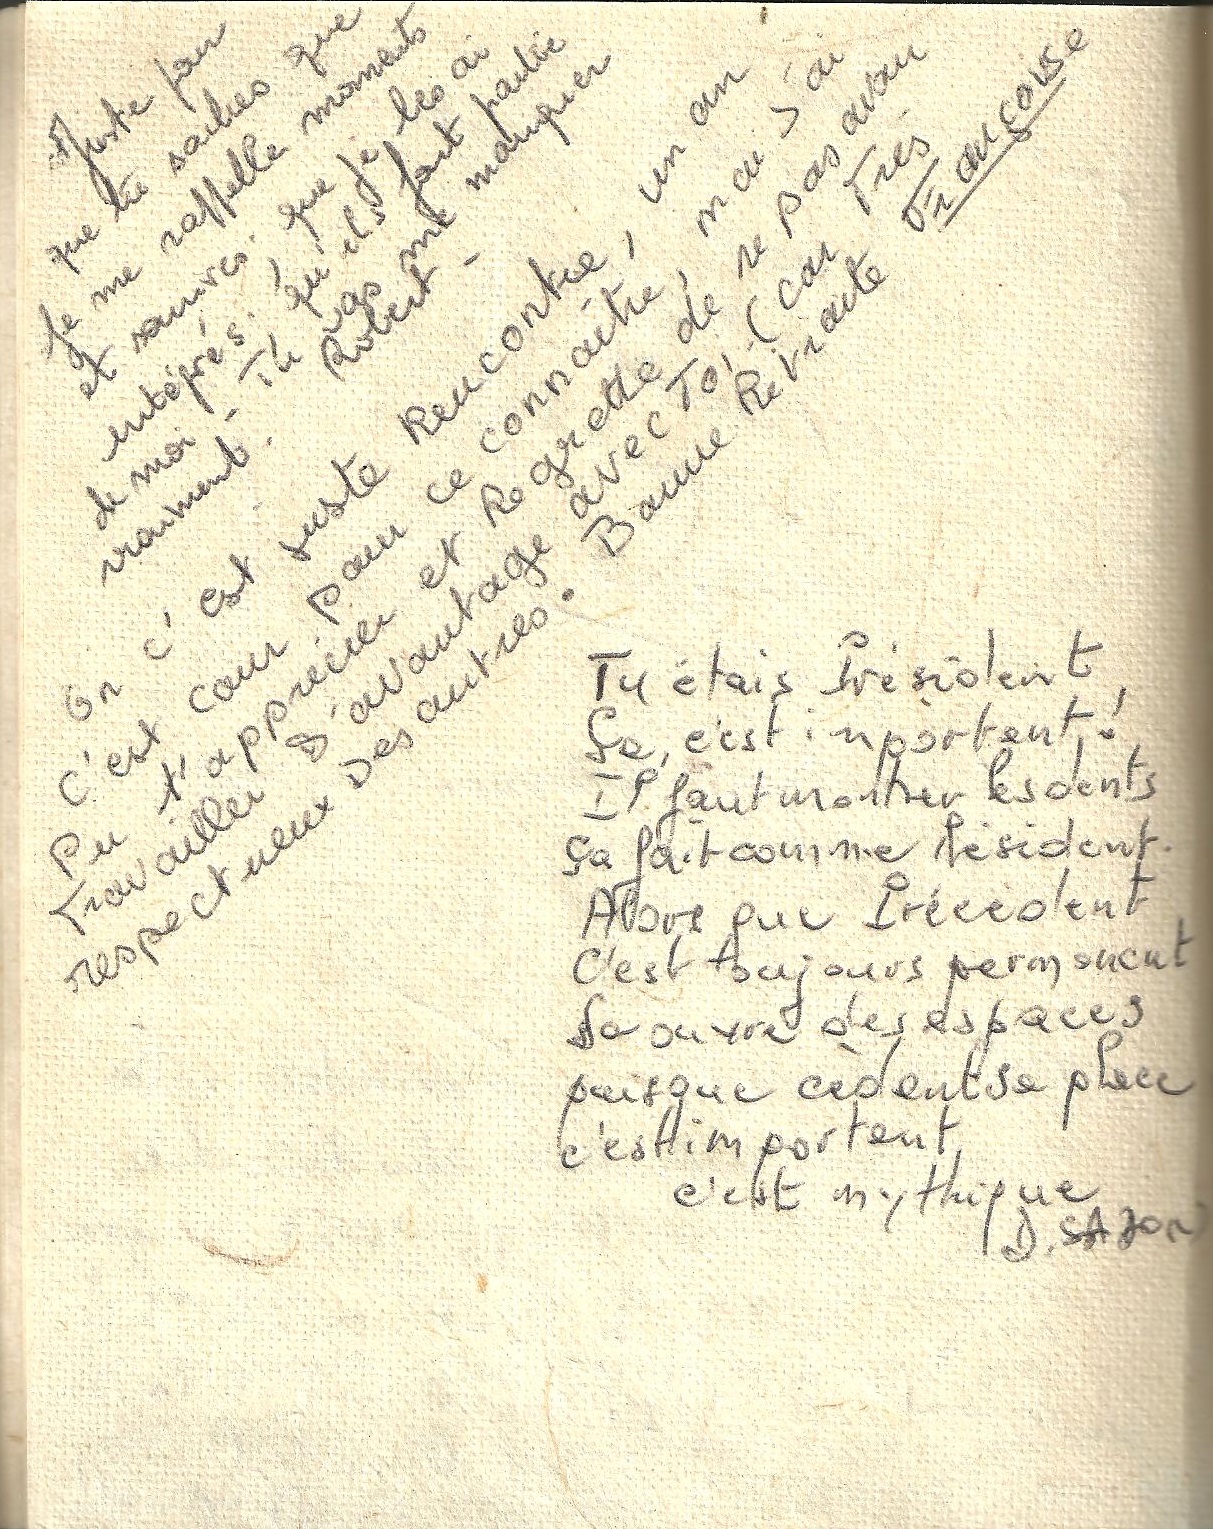 Juste pour
que tu saches que
Je me rappelle moments
et sourires. que je les ai
intéprés, qu'ils font partie
de moi - Tu vas me manquer
vraiment. Robert -
On c'est juste Rencontre, un an
c'est cour pour ce connaître, mai J'ai
Pu t'apprécier et Regrette de ne pas avau
Travailler d'avantage avec Toi, (car Très
respectueux Des autres. Bonne Retraite Françoise
Tu étais Président,
Ça, c'est inportent !
Il faut montrer les dents
Ça fait comme Résident.
Alors que Précédent
C'est toujours permanent
Sa ouvre des espaces
puisque cèdent sa place
c'est important,
c'est mythique
D. SAJON